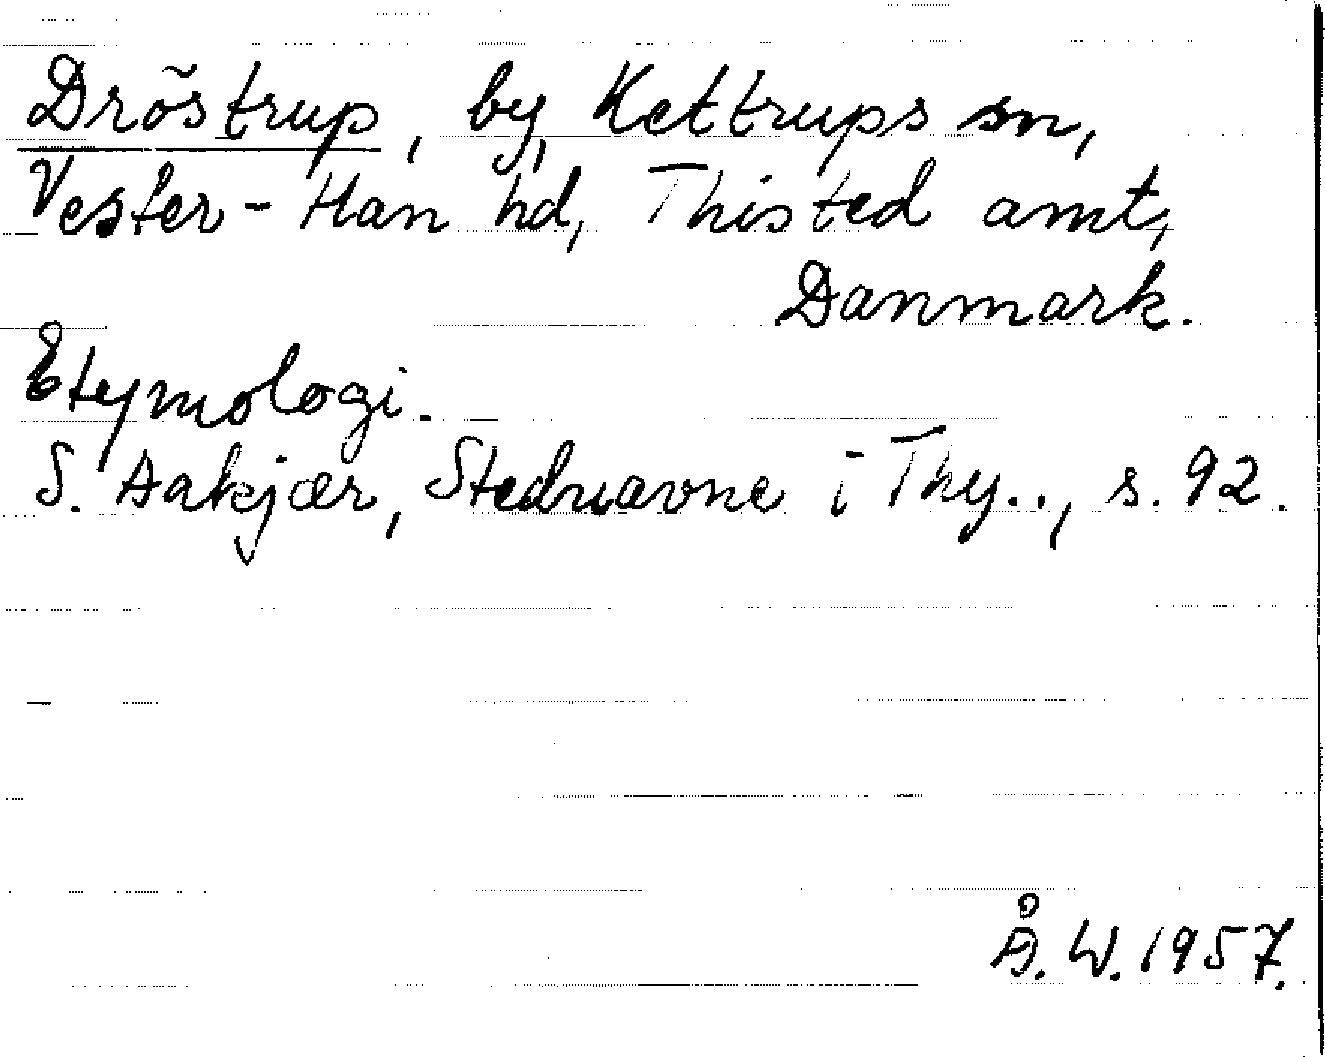 Dröstrup, by, Kettrups sn,
Vester-Han hd, Thisted amt,
Danmark.
Etymologi.
S. Aakjær, Stednavne i Thy.., s. 92.
Å. W. 1957.